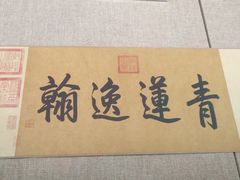 青蓮逸翰